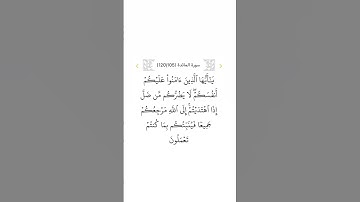 سورة المائدة (120/105)
يَـٰٓأَيُّهَا ٱلَّذِينَ ءَامَنُوا۟ عَلَيْكُمْ
أَنفُسَكُمْ ۖ لَا يَضُرُّكُم مَّن ضَلَّ
إِذَا ٱهْتَدَيْتُمْ ۚ إِلَى ٱللَّهِ مَرْجِعُكُمْ
جَمِيعًا فَيُنَبِّئُكُم بِمَا كُنتُمْ
تَعْمَلُونَ